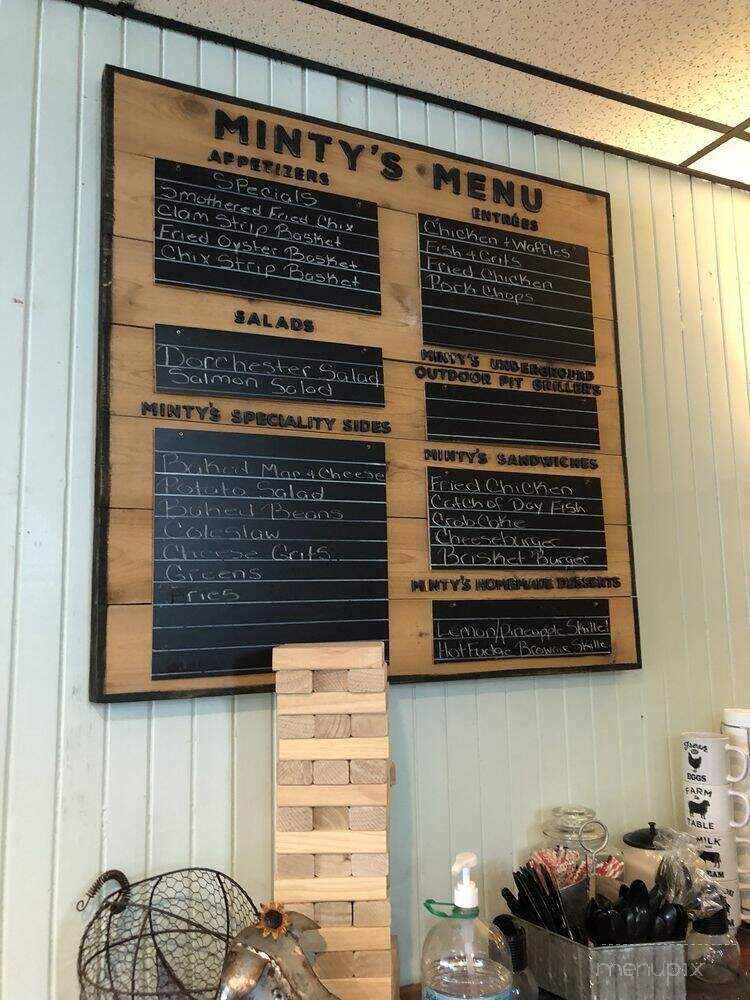 MINTY'S MENU
APPETIZERS
Specials
Smothered Fried Chix
Clam Strip Basket
Fried Oyster Basket
Chix Strip Basket
SALADS
Dorchester Salad
Salmon Salad
MINTY'S SPECIALITY SIDES
Baked Mac + Cheese
Potato Salad
Baked Beans
Coleslaw
Cheese Grits
Greens
Fries
ENTRÉES
Chicken + Waffles
Fish + Grits
Fried Chicken
Pork Chops
MINTY'S UNDERGROUND
OUTDOOR PIT GRILLERS
MINTY'S SANDWICHES
Fried Chicken
Catch of Day Fish
Crab Cake
Cheeseburger
Brisket Burger
MINTY'S HOMEMADE DESSERTS
Lemon/Pineapple Skille
Hot Fudge Brownie Skille
EGGS
FARM
TABLE
MILK
menupix